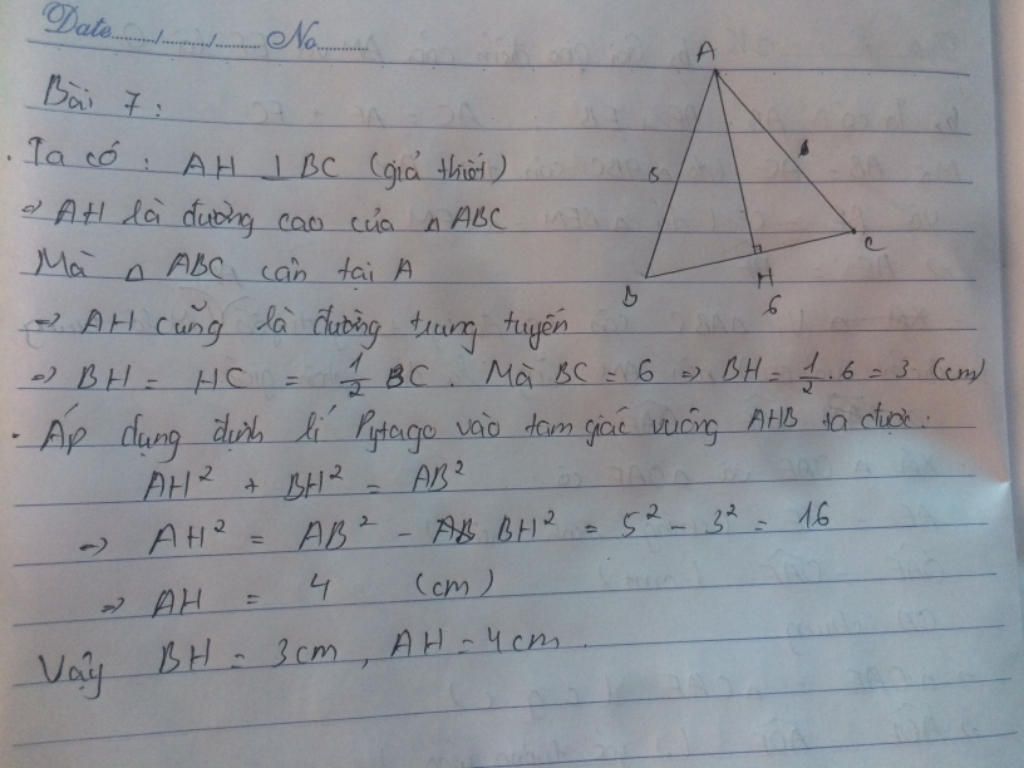 Date....../....../...... No..........
Bài 7:
. Ta có: AH ⊥ BC (giả thiết)
⇒ AH là đường cao của △ ABC
Mà △ ABC cân tại A
⇒ AH cũng là đường trung tuyến
⇒ BH = HC = 1/2 BC. Mà BC = 6 ⇒ BH = 1/2 . 6 = 3 (cm)
. Áp dụng định lí Pytago vào tam giác vuông AHB ta được:
AH² + BH² = AB²
⇒ AH² = AB² - BH² = 5² - 3² = 16
⇒ AH = 4 (cm)
Vậy BH = 3cm, AH = 4cm.
A
5
B
H
6
C